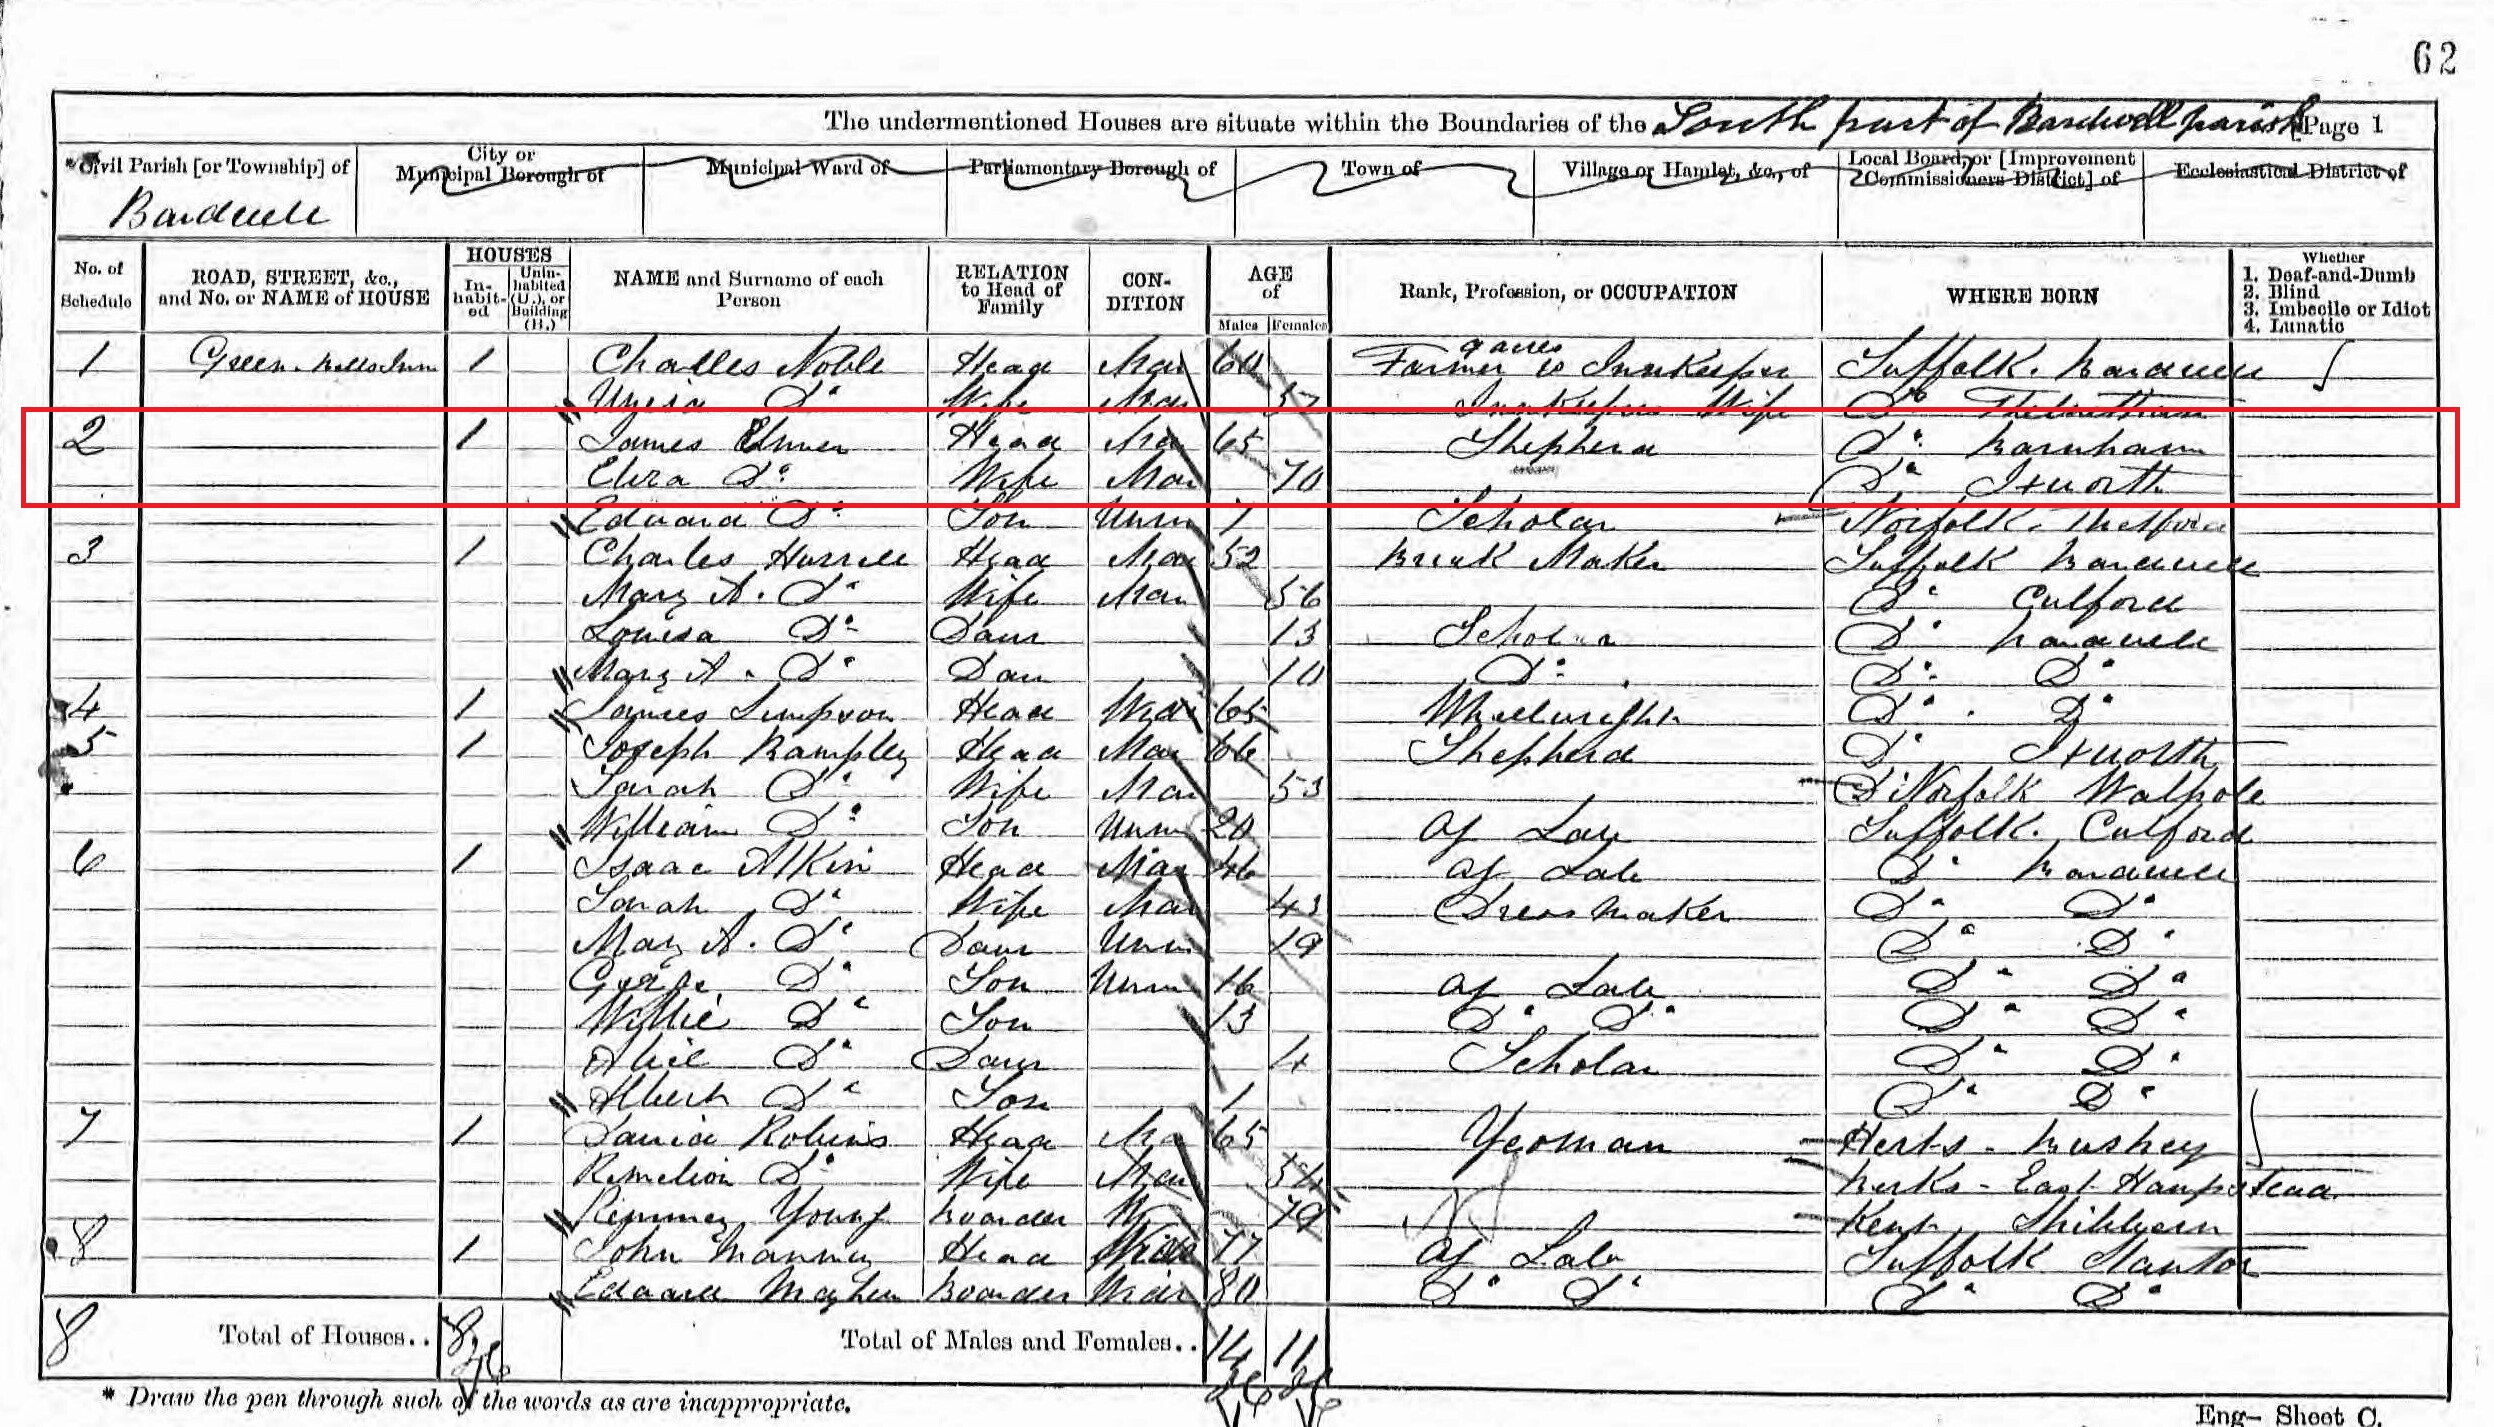 62
The undermentioned Houses are situate within the Boundaries of the South part of Bardwell parish [Page 1
*Civil Parish [or Township] of City or Municipal Borough of Municipal Ward of Parliamentary Borough of Town of Village or Hamlet, &c., of Local Board, or [Improvement Commissioners District] of Ecclesiastical District of
Bardwell
No. of Schedule ROAD, STREET, &c., and No. or NAME of HOUSE HOUSES In-habit-ed Unin-habited (U.), or Building (B.) NAME and Surname of each Person RELATION to Head of Family CON-DITION AGE of Males Females Rank, Profession, or OCCUPATION WHERE BORN Whether 1. Deaf-and-Dumb 2. Blind 3. Imbecile or Idiot 4. Lunatic
1 Green 1 Charles Noble Head Mar 60 Farmer 9 acres & Innkeeper Suffolk. Bardwell
Do Wife Mar 57 Innkeepers Wife Do
2 1 James Elmer Head Mar 65 Shepherd Do Barnham
Eliza Do Wife Mar 70 Do Ixworth
Edward Do Son Unm 7 Scholar Norfolk. Thetford
3 1 Charles Hurrell Head Mar 52 Brick Maker Suffolk Bardwell
Mary A. Do Wife Mar 56 Do Culford
Louisa Do Daur 13 Scholar Do Bardwell
Mary A. Do Daur 10 Do Do Do
4 1 James Simpson Head Widr 65 Wheelwright Do Do
5 1 Joseph Rampley Head Mar 66 Shepherd Do Ixworth
Sarah Do Wife Mar 53 Do Norfolk Walpole
William Do Son Unm 20 Ag Lab Suffolk. Culford
6 1 Isaac Atkin Head Mar 46 Ag Lab Do Bardwell
Sarah Do Wife Mar 43 Dress maker Do Do
Mary A. Do Daur Unm 19 Do Do
George Do Son Unm 16 Ag Lab Do Do
Willie Do Son 13 Do Do Do Do
Do Daur 4 Scholar Do Do
Albert Do Son 1 Do Do
7 1 David Robins Head Mar 65 Yeoman Herts - Bushey
Do Wife Mar Berks - East Hampstead
Young Boarder W 79 Kent
8 1 John Manning Head Widr 77 Ag Lab Suffolk Stanton
Edward Mayhew Boarder Widr 80 Do Do Do Do
8 Total of Houses.. 8 Total of Males and Females.. 14 11
* Draw the pen through such of the words as are inappropriate.
Eng- Sheet C.